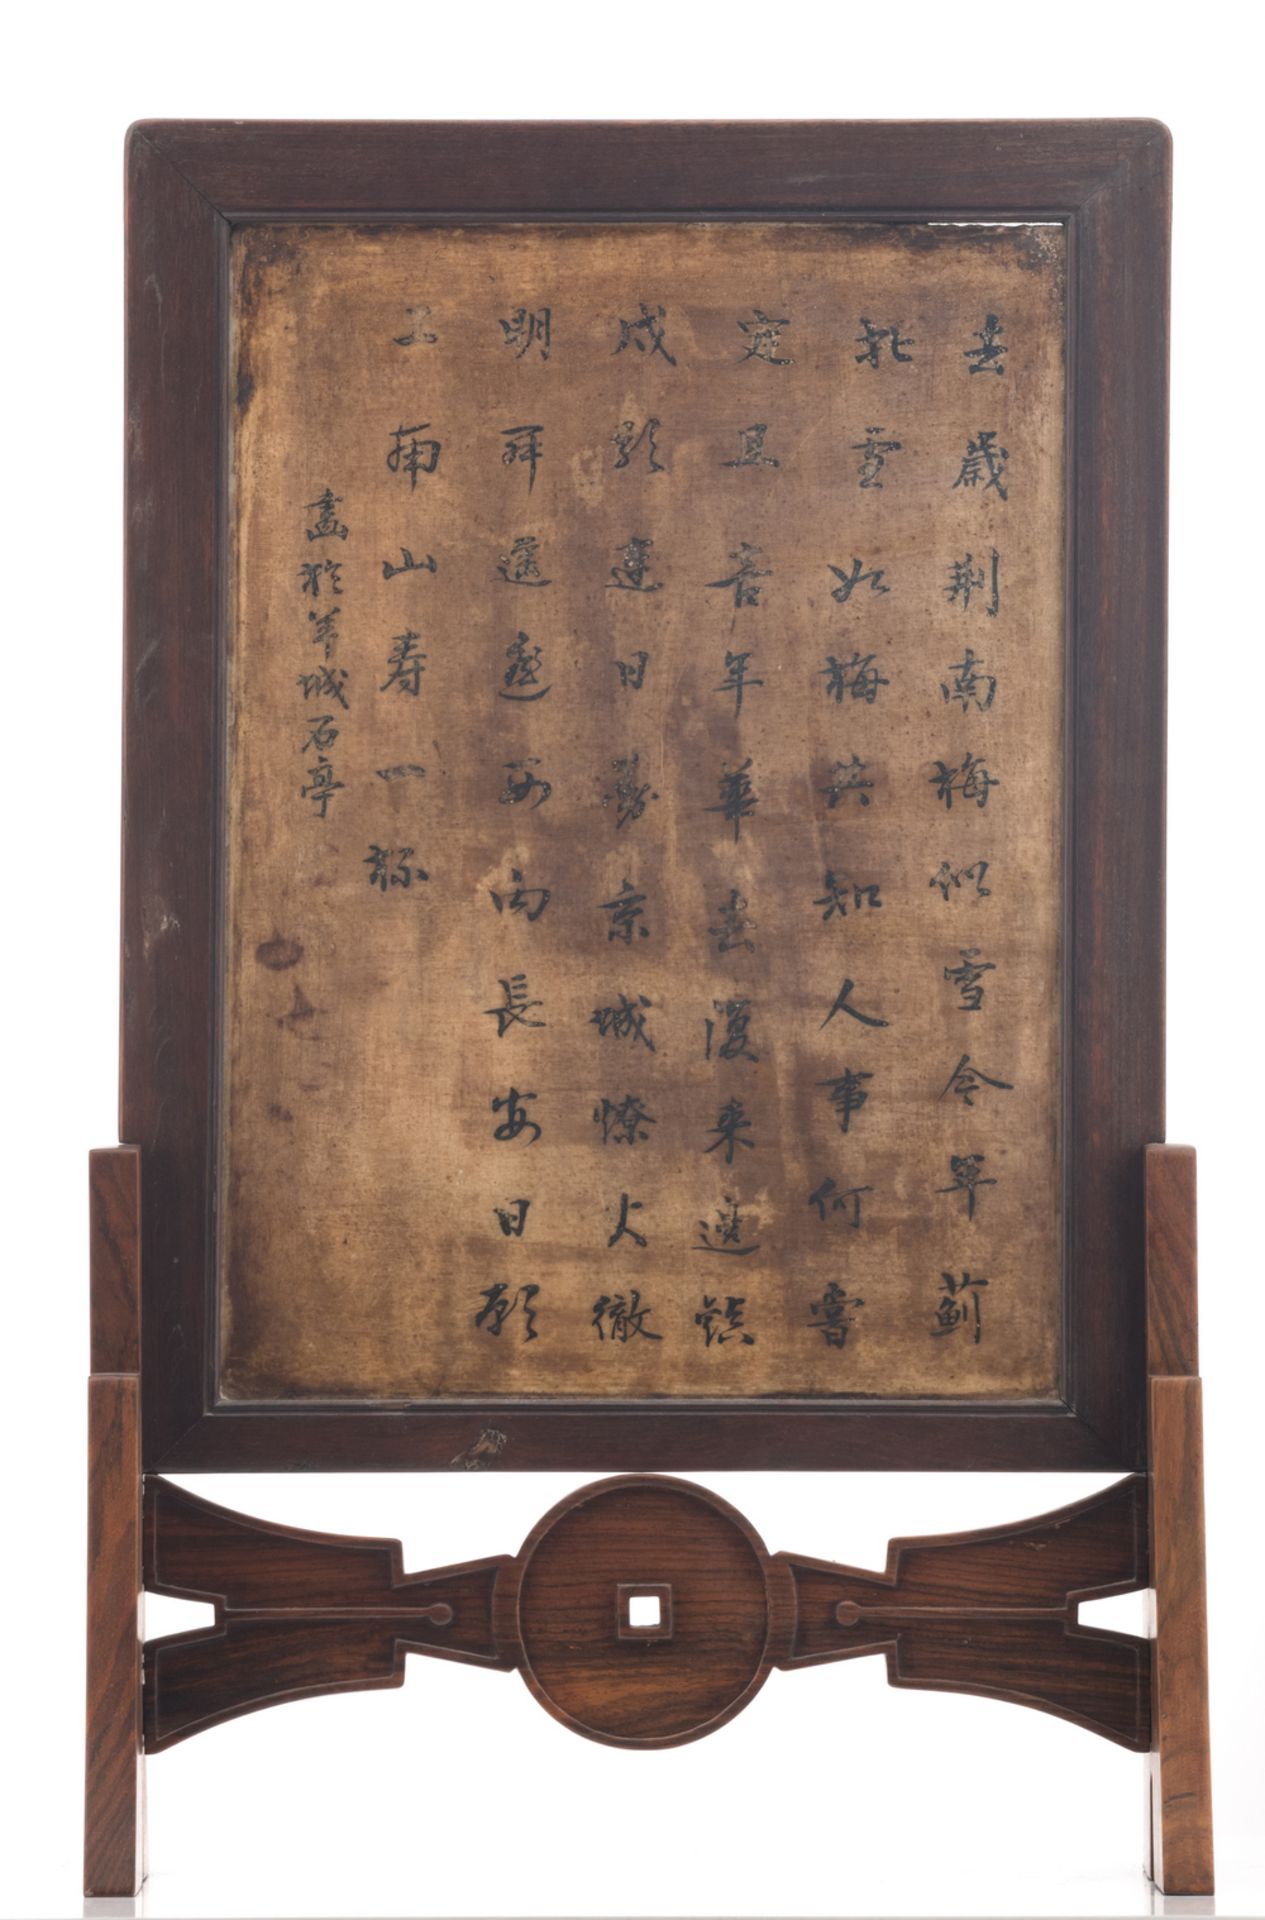 去歲荆南梅似雪今年薊
北雪如梅共知人事何嘗
定且喜年華去復来邊鎮
戍歌連日動京城燎火徹
明開遥遥西向長安日願
上南山寿一杯
畵於羊城石亭